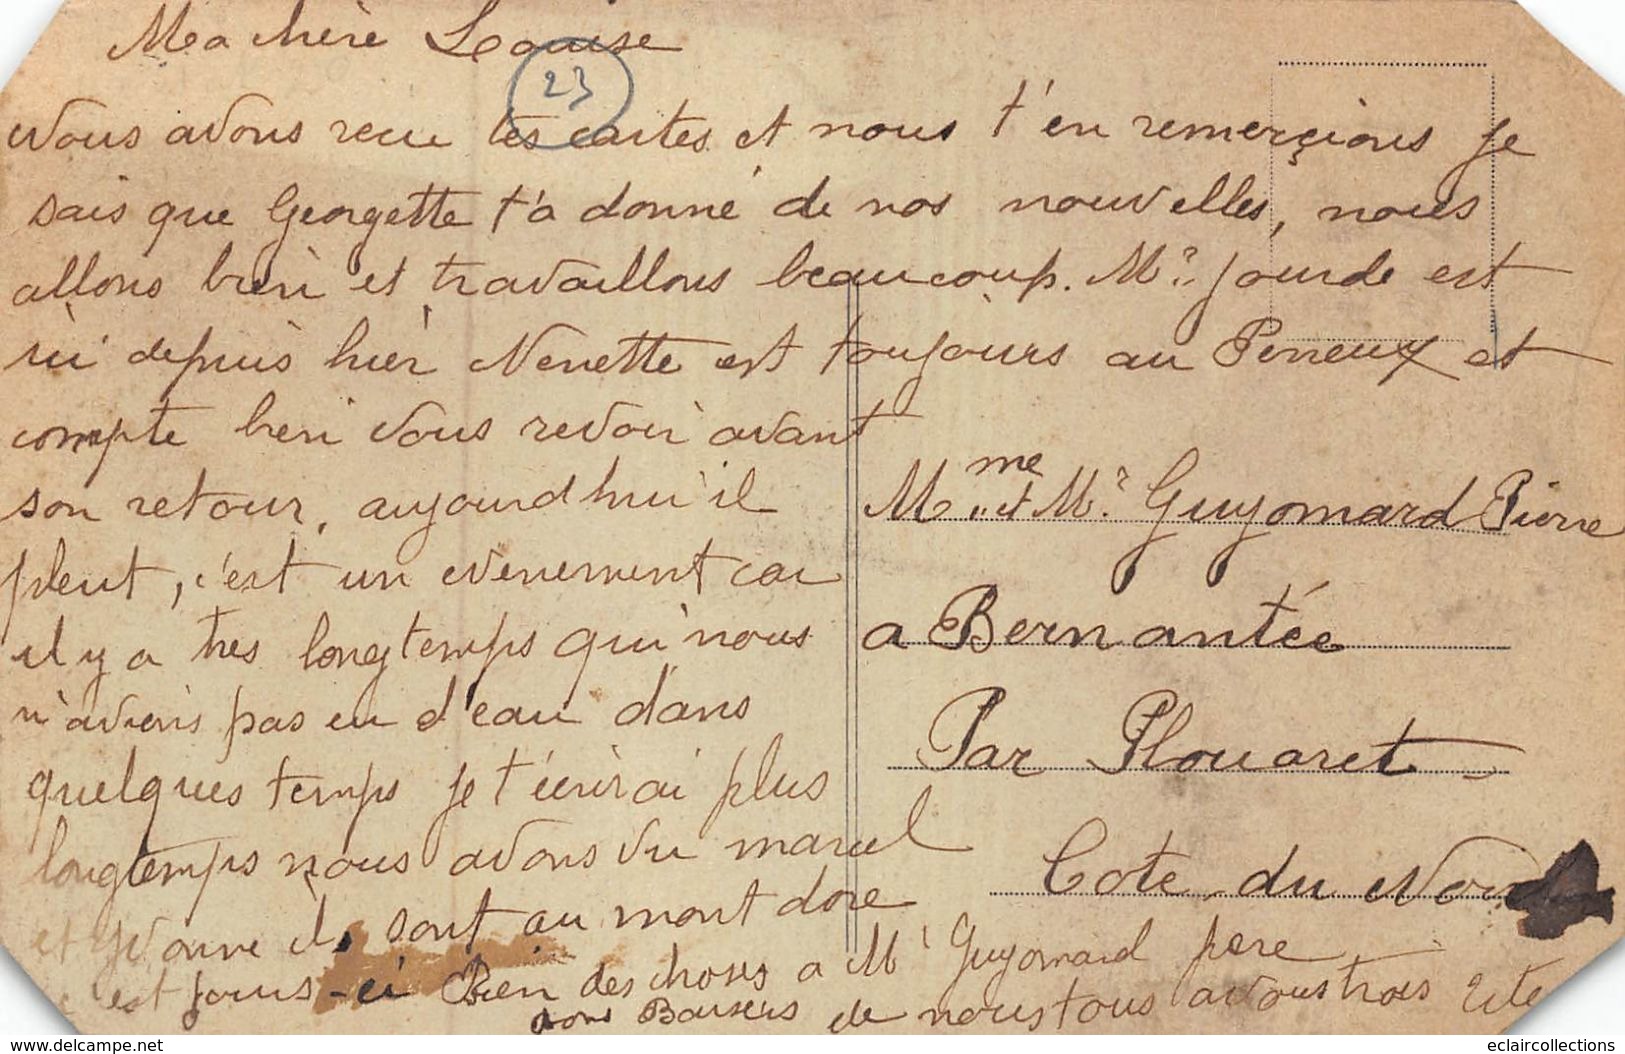 Ma chère Louise
23
Nous avons recu tes cartes et nous t'en remerçions je
sais que Georgette t'a donné de nos nouvelles, nous
allons bien et travaillons beaucoup. Mr Jourde est
ici depuis hier Nenette est toujours au Perreux et
compte bien vous revoir avant
son retour, aujourd hui il
pleut, c'est un evenement car
il y a tres longtemps que nous
n'avions pas eu d'eau dans
quelques temps je t'écrirai plus
longtemps nous avons vu marcel
et Yvonne ils sont au mont dore
est jours-ci Bien des choses a Mr Guyomard pere
Baisers de nous tous a vous trois
Mme et Mr Guyomard Pierre
a Bernantée
Par Plouaret
Cote du Nord
www.delcampe.net
eclaircollections